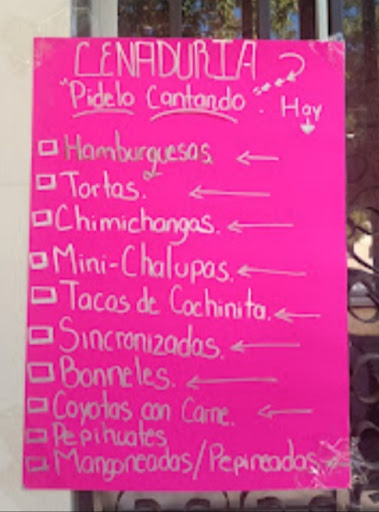 CENADURIA
"Pidelo Cantando"
Hay
Hamburguesas.
Tortas.
Chimichangas.
Mini-Chalupas.
Tacos de Cochinita.
Sincronizadas.
Bonneles.
Coyotas con Carne.
Pepihuates
Mangoneadas/Pepineadas